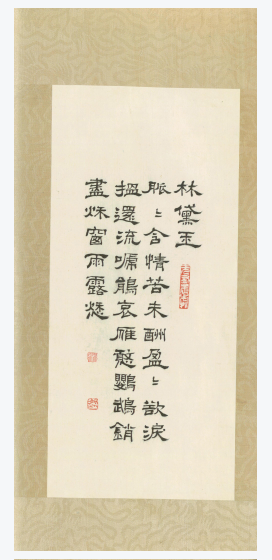 林黛玉
脈〻含情苦未酬盈〻欲淚
搵還流嗁鵑哀雁憨鸚鵡銷
盡秌窗雨露